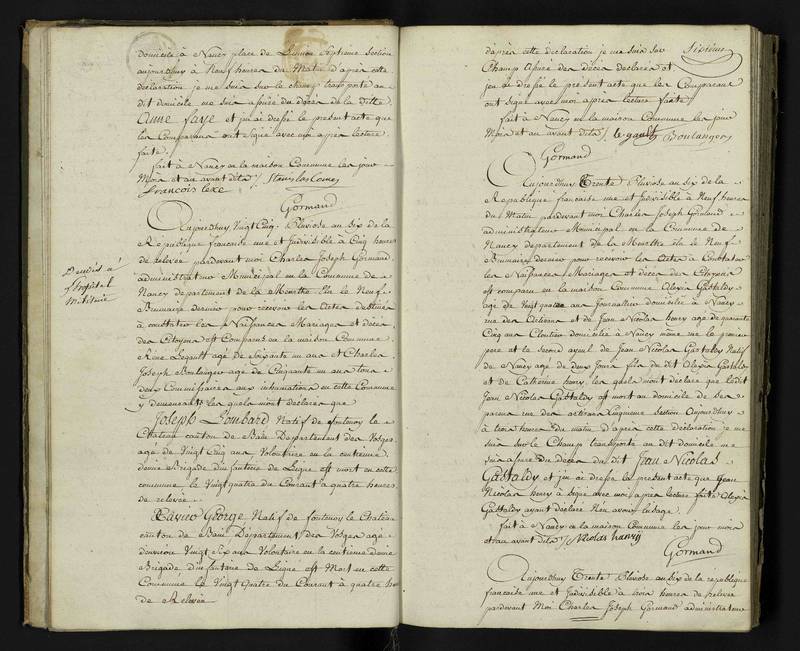 domicilié à Nancy place de Septieme Section
aujourdhuy à Neuf heures du Matin d'après cette
déclaration je me suis sur le champ transporté au
dit domicile me suis assuré du décès de la ditte
Anne faye et j'ai dressé le present acte que
les Comparans ont signé avec moi après lecture
faite.
fait à Nancy en la maison Commune les jour
Mois et an avant dits /. Stanislas
francois lexe
Gormand
Aujourdhuy Vingt Cinq Pluviose an six de la
République francaise une et Indivisible à Cinq heures
de relevée pardevant moi Charles Joseph Gormand
administrateur Municipal en la Commune de
Nancy département de la Meurthe élu le Neuf
Brumaire dernier pour recevoir les Actes destinés
à constater les Naissances Mariages et décès
des Citoyens est Comparus en la maison Commune
Réné Legault agé de Soixante un ans et Charles
Joseph Boulanger agé de Cinquante un ans tous
deux Commissaires aux inhumations en cette Commune
y demeurants les quels m'ont déclarés que
Joseph Lombard Natif de fontenoy le
Château canton de Bain Département des Vosges
agé de Vingt Cinq ans Volontaire en la centieme
demie Brigade d'infanterie de Ligne est mort en cette
commune le Vingt quatre du Courant à quatre heures
de relevée
George Natif de fontenoy le Chateau
canton de Bain Département des Vosges agé
d'environ Vingt Six ans Volontaire en la centieme demie
Brigade d'infanterie de Ligne est Mort en cette
Commune le Vingt quatre du Courant à quatre
de Relevée
Décédés à
l'hopital
Militaire
d'après cette déclaration je me suis sur
Champ assuré des décès declarés et
j'ai dressé le présent acte que les Comparans
ont signé avec moi après lecture faite
fait à Nancy en la maison Commune les jour
Mois et an avant dits /. le gault Boulanger
Gormand
Aujourdhuy Trente Pluviose an six de la
République francaise une et Indivisible à Neuf heures
du Matin pardevant moi Charles Joseph Gormand
administrateur Municipal en la Commune de
Nancy département de la Meurthe élu le Neuf
Brumaire dernier pour recevoir les Actes à Constater
les Naissances Mariages et décès des Citoyens
est comparu en la maison Commune Alexis Gastaldy
agé de Vingt quatre ans journallier domicilié à Nancy
rue des Artisans et de Jean Nicolas henry agé de quarante
Cinq ans Cloutier domicilié à Nancy même rue le premier
pere et le Second ayeul de Jean Nicolas Gastaldy Natif
de Nancy agé de deux jours fils du dit Alexis Gastaldy
et de Catherine henry les quels m'ont déclaré que ledit
Jean Nicolas Gastaldy est mort au domicile de ses
parens rue des artisans Cinquieme Section Aujourdhuy
à trois heures du matin d'après cette déclaration je me
suis sur le Champ transporté au dit domicile me
suis assuré du décès du dit Jean Nicolas
Gastaldy et j'ai dressé le présent acte que Jean
Nicolas henry à signé avec moi après lecture faite Alexis
Gastaldy ayant déclaré n'en avoir l'usage
fait à Nancy en la maison Commune les jour mois
et an avant dits /. Nicolas hanrÿ
Gormand
Aujourdhuy Trente Pluviose an Six de la république
francaise une et Indivisible à trois heures de relevée
pardevant Moi Charles Joseph Gormand administrateur